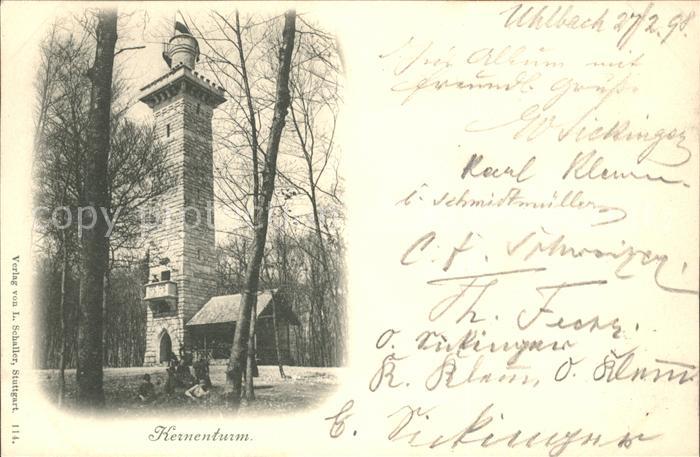 Uhlbach 27/2.98
Ihr Album mit
freundl. Gruß.
W. Sickinger
Karl Klemm
E. Schmidtmüller
C. F. Schweizer
Th. Fecht.
O. Sickinger
K. Klem, O. Klem
E. Sickinger
Kernenturm.
Verlag von L. Schaller, Stuttgart. 114.
copyright